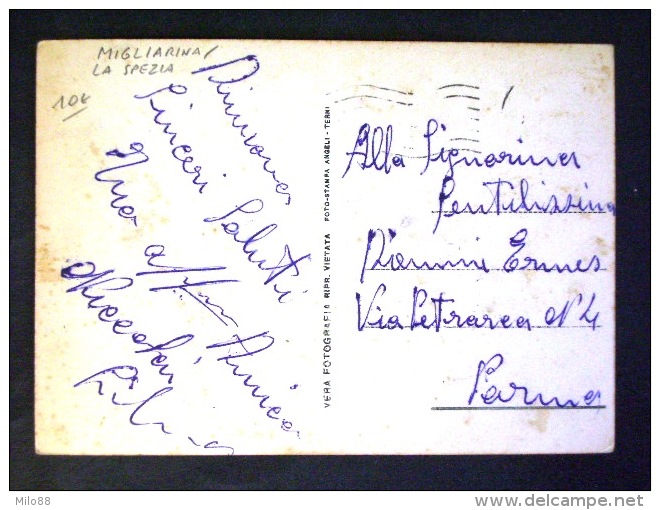 MIGLIARINA/
LA SPEZIA
10€
Sinceri Saluti
Tua aff.ma Amica
Silvia
VERA FOTOGRAFIA RIPR. VIETATA FOTO-STAMPA ANGELI - TERNI
Alla Signorina
Gentilissima
Ermes
Via Petrarca N 4
Parma
Milo88
delcampe.net